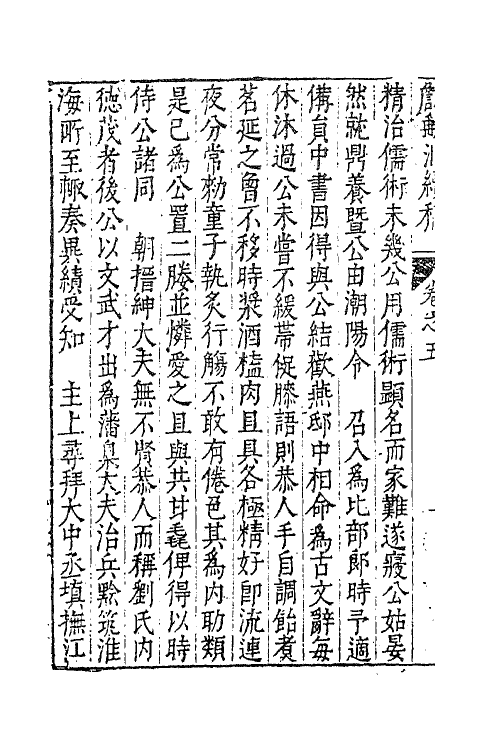 卷之五
精治儒術未幾公用儒術顯名而家難遂寢公姑晏
然就鼎養暨公由潮陽令　召入爲比部郎時予適
備員中書因得與公結歡燕邸中相命爲古文辭每
休沐過公未嘗不緩帶促膝語則恭人手自調飴煮
茗延之曾不移時漿酒榼肉且具各極精好卽流連
夜分常勑童子執炙行觴不敢有倦色其爲內助類
是已爲公置二媵並憐愛之且與共甘毳俾得以時
侍公諸同　朝搢紳大夫無不賢恭人而稱劉氏內
德茂者後公以文武才出爲藩臬大夫治兵黔筑淮
海所至輒奏異績受知　主上尋拜大中丞填撫江